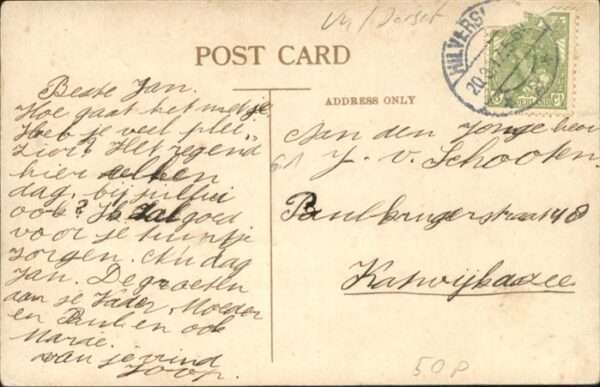 Vk / Dorset
POST CARD
HILVERS
20.8.17.
NEDERLAND
ADDRESS ONLY
Beste Jan.
Hoe gaat het met je
Heb je veel plei„
zier? Het regend
hier elken
dag, bij jullui
ook? Ik zal goed
voor je tuintje
zorgen. Nu dag
Jan. De groeten
aan je Vader, Moeder
en Paul en ook
Marie.
van je vrind
Joop.
Aan den Jonge heer
J. v. Schooten.
Paulbrugerstraat 48
Katwijkaazee
50P